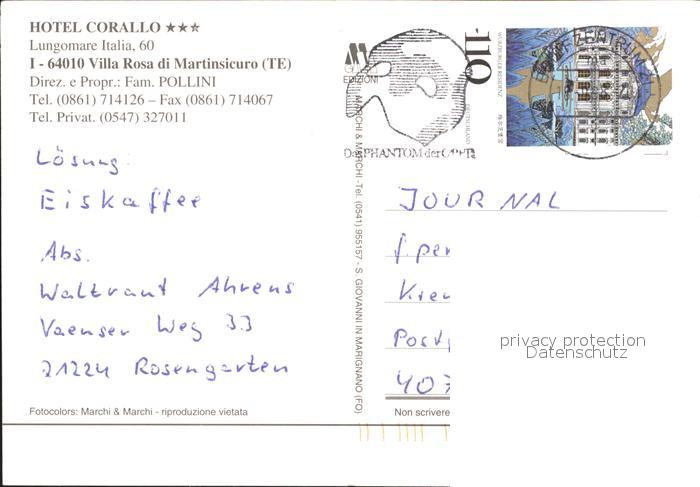 HOTEL CORALLO ★★☆
Lungomare Italia, 60
I - 64010 Villa Rosa di Martinsicuro (TE)
Direz. e Propr.: Fam. POLLINI
Tel. (0861) 714126 – Fax (0861) 714067
Tel. Privat. (0547) 327011
Lösung:
Eiskaffee
Abs.
Waltraut Ahrens
Vaenser Weg 33
21224 Rosengarten
Fotocolors: Marchi & Marchi - riproduzione vietata
EDIZIONI
MARCHI & MARCHI - Tel. (0541) 955157 - S. GIOVANNI IN MARIGNANO (FO)
Das PHANTOM der OPER
110
WÜRZBURGER RESIDENZ
DEUTSCHLAND
JOURNAL
f. per
Postf
407
privacy protection
Datenschutz
Non scrivere